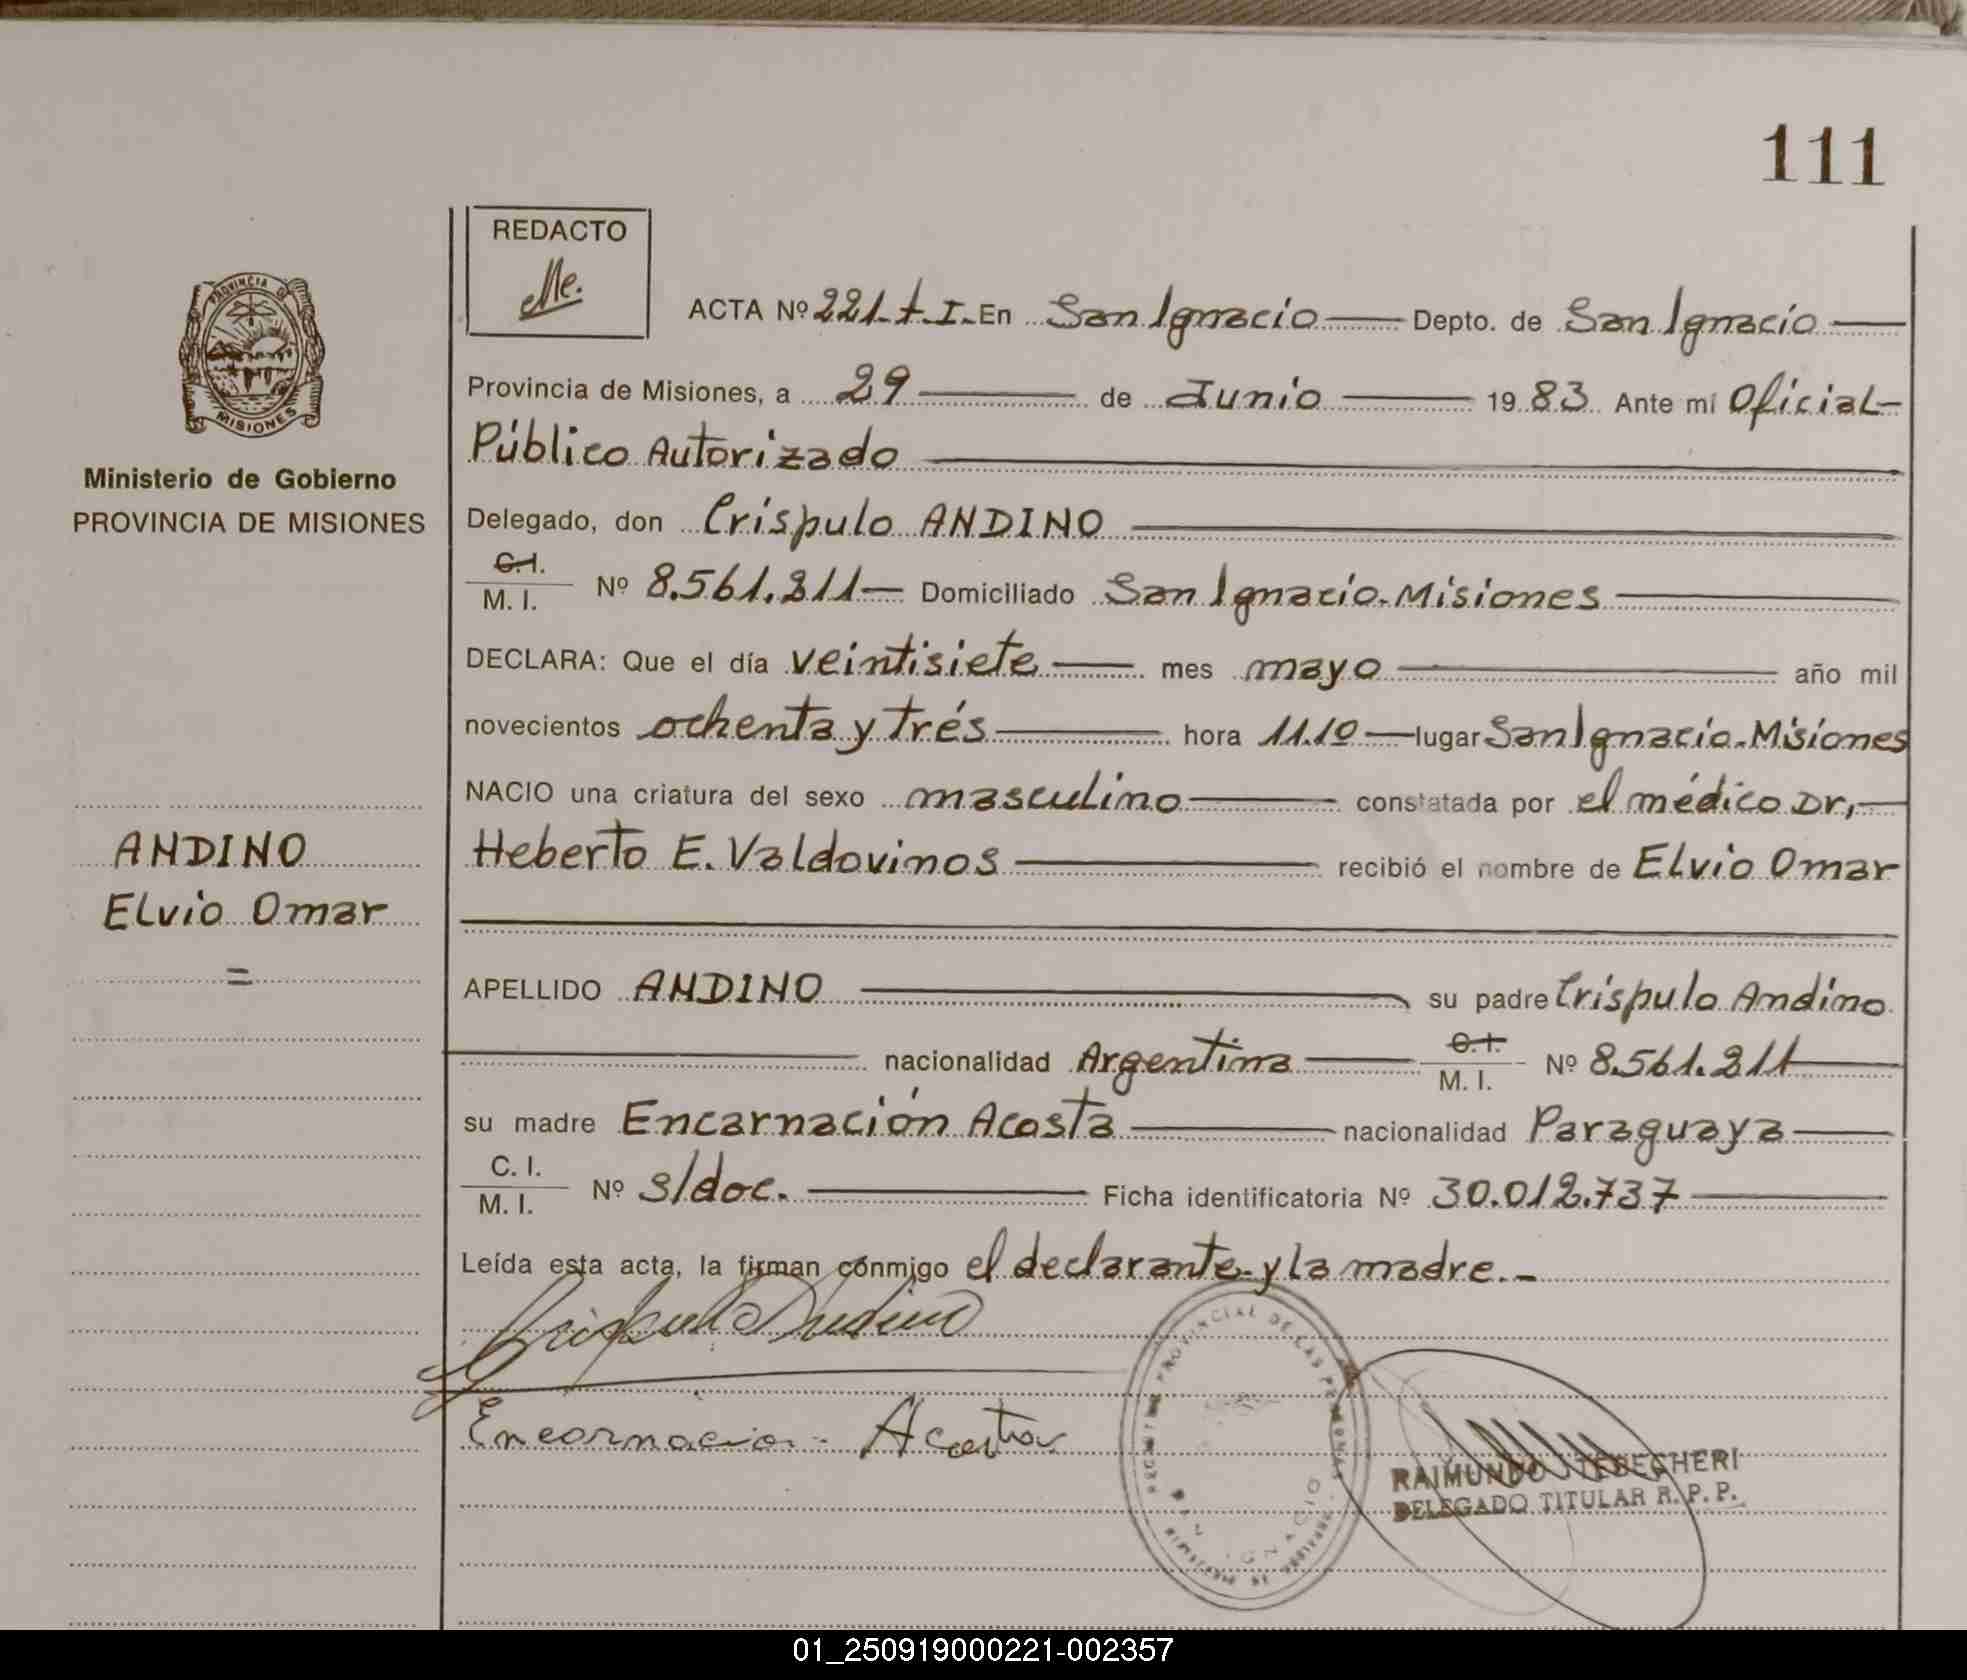 111
REDACTO
PROVINCIA DE
MISIONES
Ministerio de Gobierno
PROVINCIA DE MISIONES
ANDINO
Elvio Omar
=
ACTA Nº 221-t-I- En San Ignacio Depto. de San Ignacio
Provincia de Misiones, a 29 de Junio 19 83 Ante mí Oficial-
Público Autorizado
Delegado, don Críspulo ANDINO
C.I.
M. I. Nº 8.561.211 Domiciliado San Ignacio-Misiones
DECLARA: Que el día veintisiete mes mayo año mil
novecientos ochenta y trés hora 11.10 lugar San Ignacio-Misiones
NACIO una criatura del sexo masculino constatada por el médico Dr,
Heberto E. Valdovinos recibió el nombre de Elvio Omar
APELLIDO ANDINO su padre Críspulo Andino
nacionalidad Argentina C.I.
M. I. Nº 8.561.211
su madre Encarnación Acosta nacionalidad Paraguaya
C. I.
M. I. Nº s/doc. Ficha identificatoria Nº 30.012.737
Leída esta acta, la firman conmigo el declarante y la madre.-
Crispulo Andino
Encarnacion Acosta
PROVINCIAL DE LAS PERSONAS
RAIMUNDO
DELEGADO TITULAR R. P. P.
01_250919000221-002357